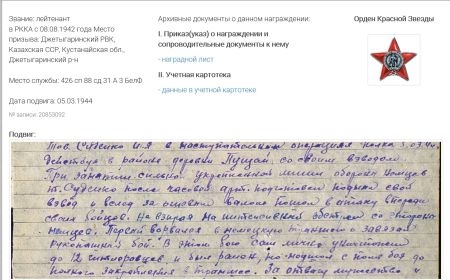 Звание: лейтенант
в РККА с 08.08.1942 года Место
призыва: Джетыгаринский РВК,
Казахская ССР, Кустанайская обл.,
Джетыгаринский р-н
Место службы: 426 сп 88 сд 31 А 3 БелФ
Дата подвига: 05.03.1944
№ записи: 20859092
Архивные документы о данном награждении:
I. Приказ(указ) о награждении и
сопроводительные документы к нему
- наградной лист
II. Учетная картотека
- данные в учетной картотеке
Орден Красной Звезды
Подвиг:
Тов. И.Я в наступательных операциях полка 5.03.44.
Действуя в районе деревни Пущай. со своим взводом.
При занятии сильно укрепленной линии обороны немцев
т. после часовой арт. подготовки поднял свой
взвод и вслед за огневым валом пошел в атаку впереди
своих бойцов. Не взирая на интенсивный обстрел со стороны
немцев. Первый ворвался в немецкую траншею и завязал
рукопашный бой. В этом бою сам лично уничтожил
до 12 гитлеровцев и был ранен, но не ушел с поля боя до
полного закрепления в траншее. За отвагу мужество и